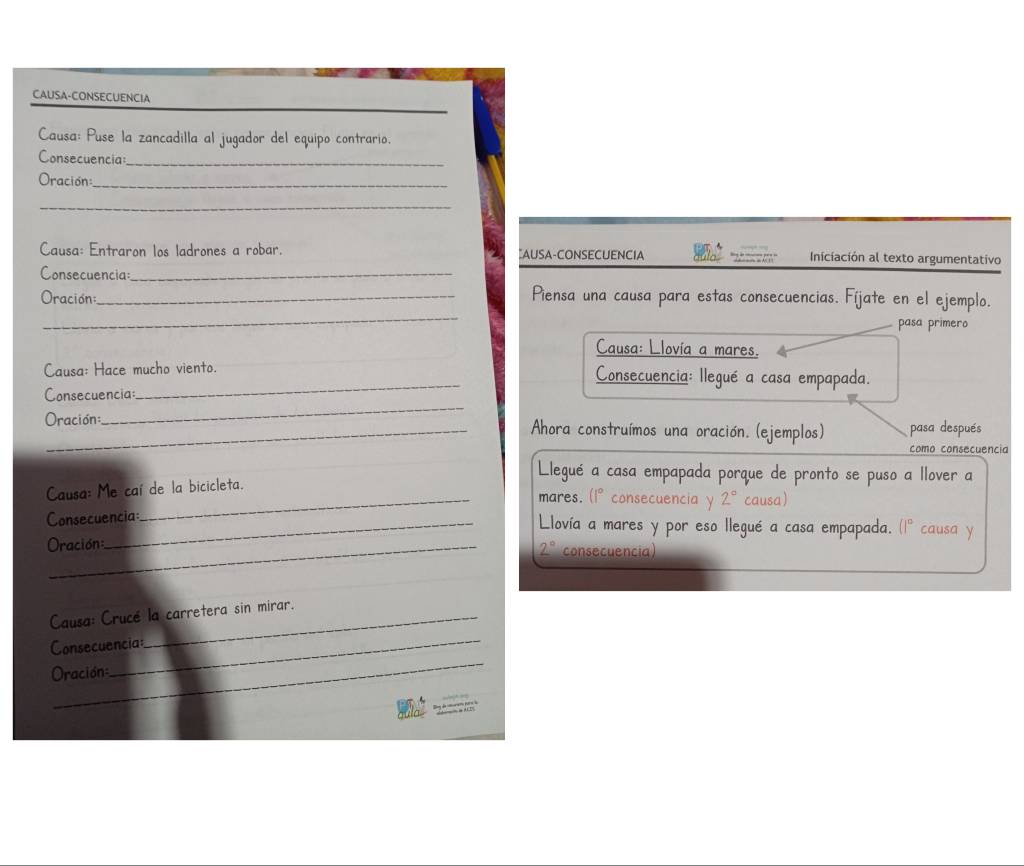 CAUSA-CONSECUENCIA
Causa: Puse la zancadilla al jugador del equipo contrario.
Consecuencia:
Oración:
Causa: Entraron los ladrones a robar.
Consecuencia:
Oración:
Causa: Hace mucho viento.
Consecuencia:
Oración:
Causa: Me caí de la bicicleta.
Consecuencia:
Oración:
Causa: Crucé la carretera sin mirar.
Consecuencia:
Oración:
PT
aula
Blog de recursos para la
elaboración de ACES
CAUSA-CONSECUENCIA
PT
aula
Blog de recursos para la
elaboración de ACES
Iniciación al texto argumentativo
Piensa una causa para estas consecuencias. Fíjate en el ejemplo.
pasa primero
Causa: Llovía a mares.
Consecuencia: llegué a casa empapada.
Ahora construímos una oración. (ejemplos)
pasa después
como consecuencia
Llegué a casa empapada porque de pronto se puso a llover a
mares. (1º consecuencia y 2º causa)
Llovía a mares y por eso llegué a casa empapada. (1º causa y
2º consecuencia)